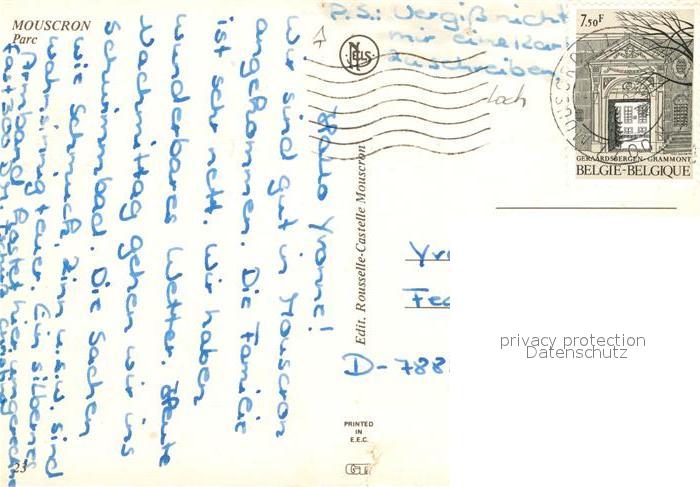 MOUSCRON
Parc
P.S.: Vergiß nicht
mir eine Kar
zu schreiben
Loch
NELS
7,50F
GERAARDSBERGEN-GRAMMONT
BELGIE-BELGIQUE
Hallo Yvonne!
Wir sind gut in Mouscron
angekommen. Die Familie
ist sehr nett. Wir haben
wunderbares Wetter. Heute
Nachmittag gehen wir ins
Schwimmbad. Die Sachen
wie Schmuck, Zinn u.s.w. sind
wahnsinnig teuer. Ein silbernes
Armband kostet hier umgerechnet
fast 300 DM.
Edit. Rousselle-Castelle Mouscron
Yv
Fe
D-788
privacy protection
Datenschutz
PRINTED
IN
E.E.C.
23